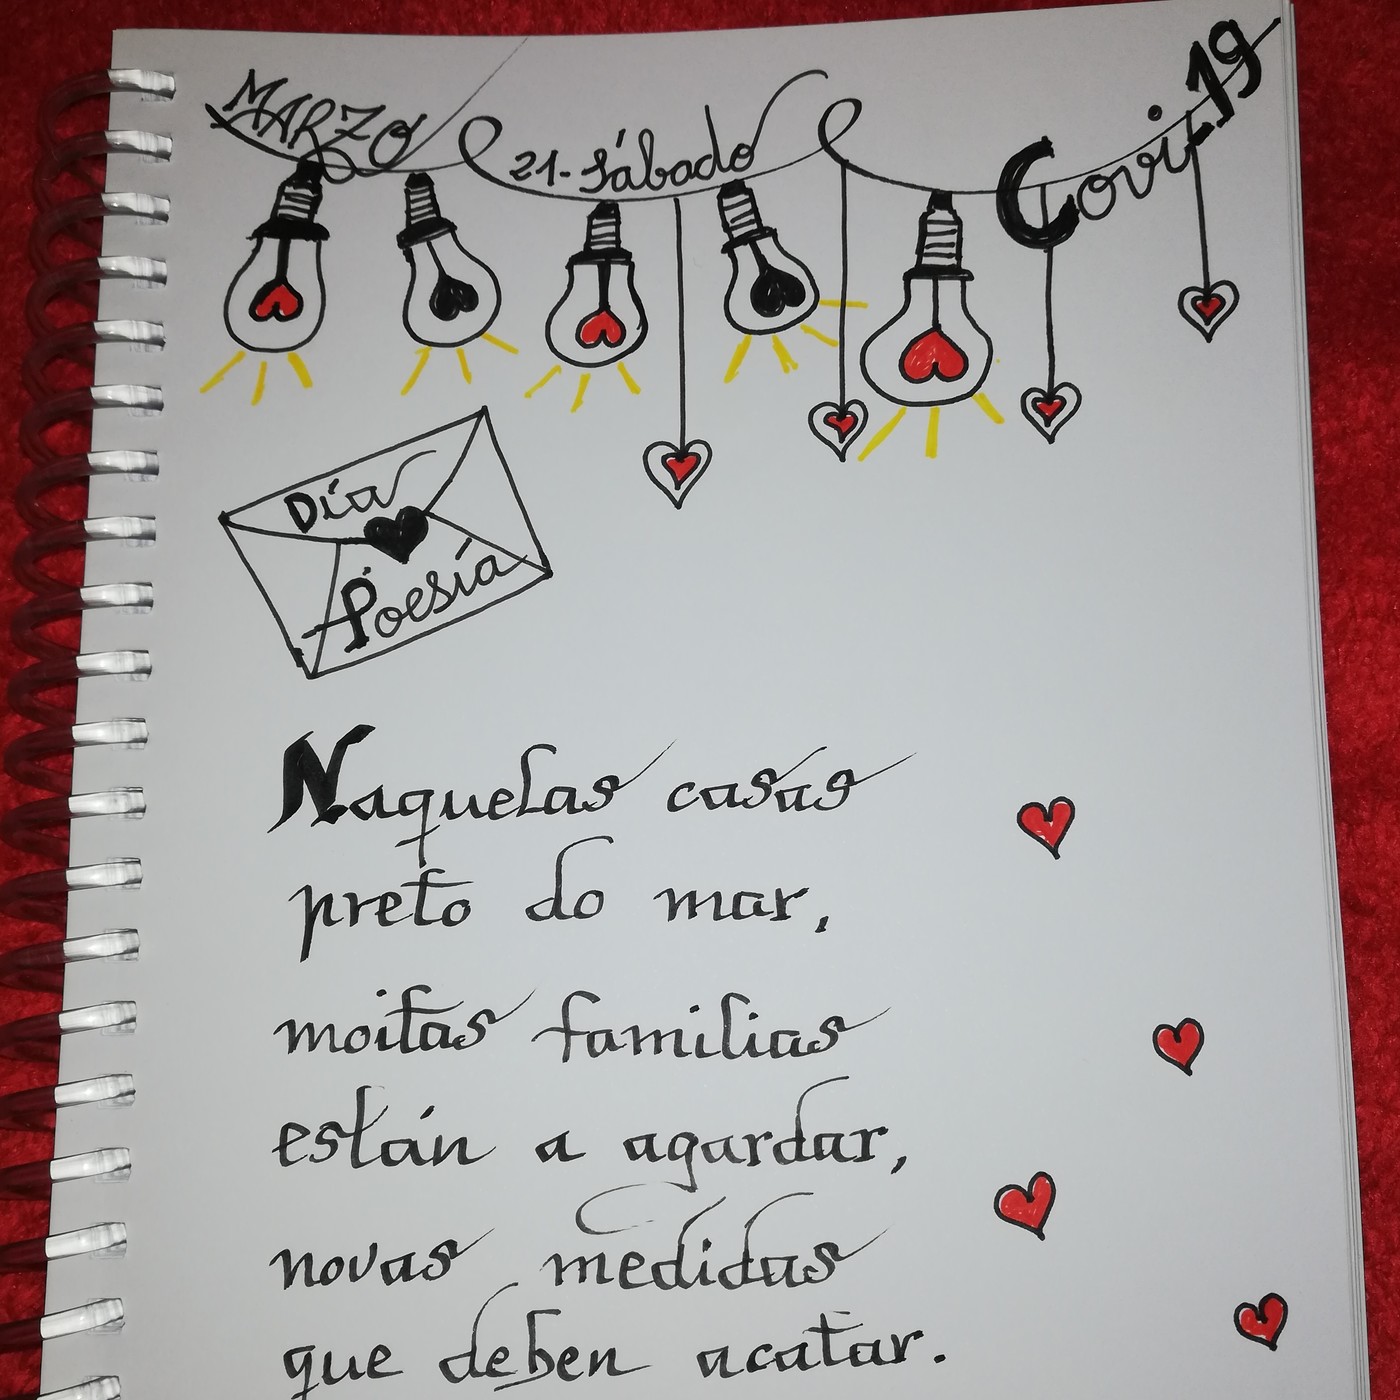 MARZO
21-Sábado
Covi-19
Día
Poesía
Naquelas casas
preto do mar,
moitas familias
están a agardar,
novas medidas
que deben acatar.